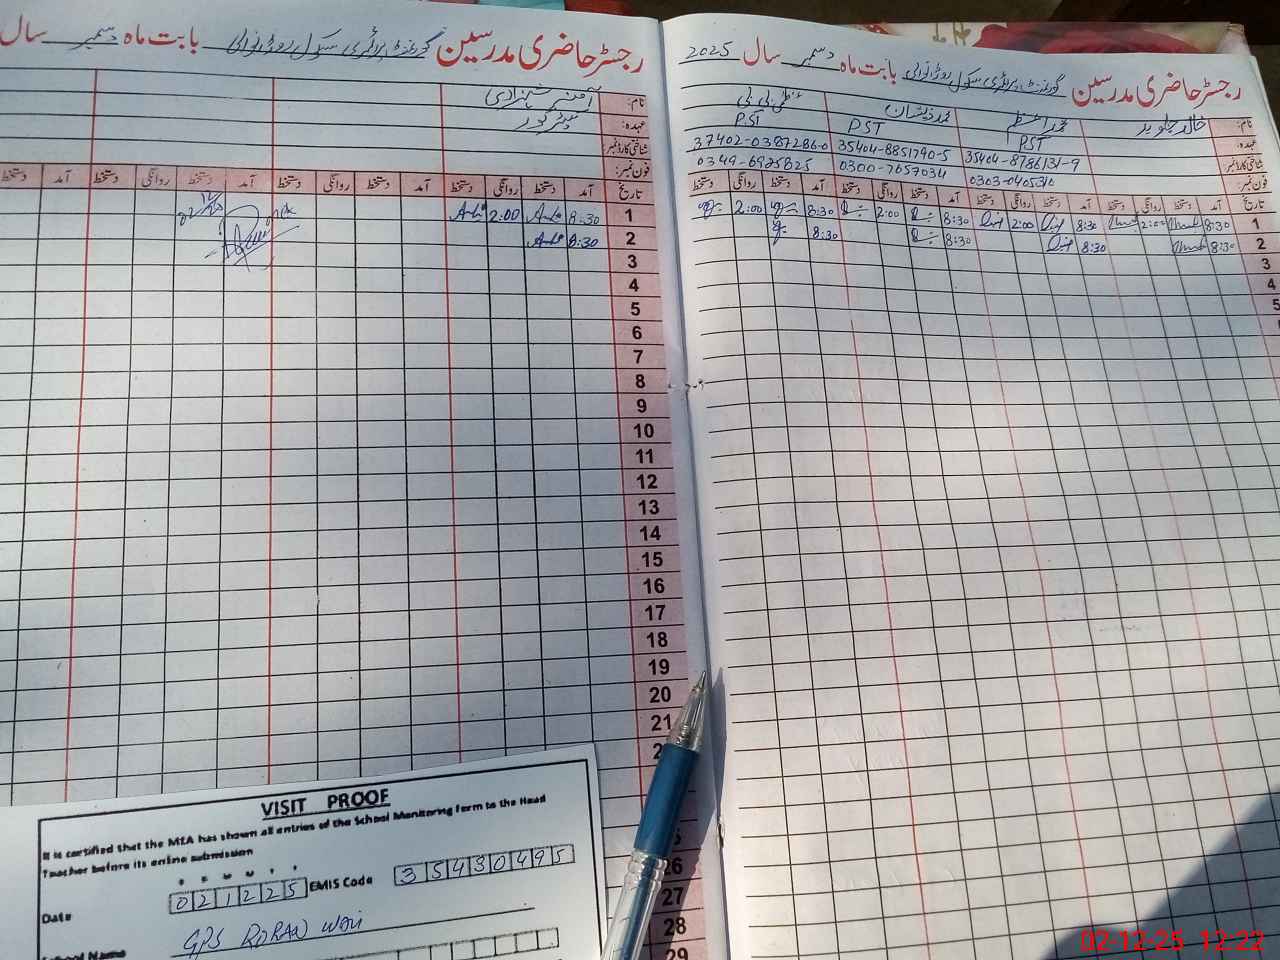 رجسٹر حاضری مدرسین گورنمنٹ پرائمری سکول روڑانوالی بابت ماہ دسمبر سال 2025
نام: خالد جاوید محمد اعظم محمد ذیشان عظمیٰ بی بی
عہدہ: PST PST PST
شناختی کارڈ نمبر 35404-8786131-9 35404-8851790-5 37402-0387286-0
فون نمبر: 0303-0405310 0300-7657034 0349-6925825
تاریخ آمد دستخط روانگی دستخط آمد دستخط روانگی دستخط آمد دستخط روانگی دستخط آمد دستخط روانگی دستخط
1 8:30 2:00 8:30 2:00 8:30 2:00 8:30 2:00
2 8:30 8:30 8:30 8:30
3
4
5
رجسٹر حاضری مدرسین گورنمنٹ پرائمری سکول روڑانوالی بابت ماہ دسمبر سال
نام: آمنہ شہزادی
عہدہ:
شناختی کارڈ نمبر
فون نمبر:
تاریخ آمد دستخط روانگی دستخط آمد دستخط روانگی دستخط آمد دستخط روانگی دستخط آمد دستخط
1 8:30 2:00
2 8:30
3
4
5
6
7
8
9
10
11
12
13
14
15
16
17
18
19
20
21
26
27
28
29
VISIT PROOF
It is certified that the MEA has shown all entries of the School Monitoring form to the Head
Teacher before its online submission
Date 021225 EMIS Code 35430495
School Name GPS RORAN Wali
02-12-25 12:22